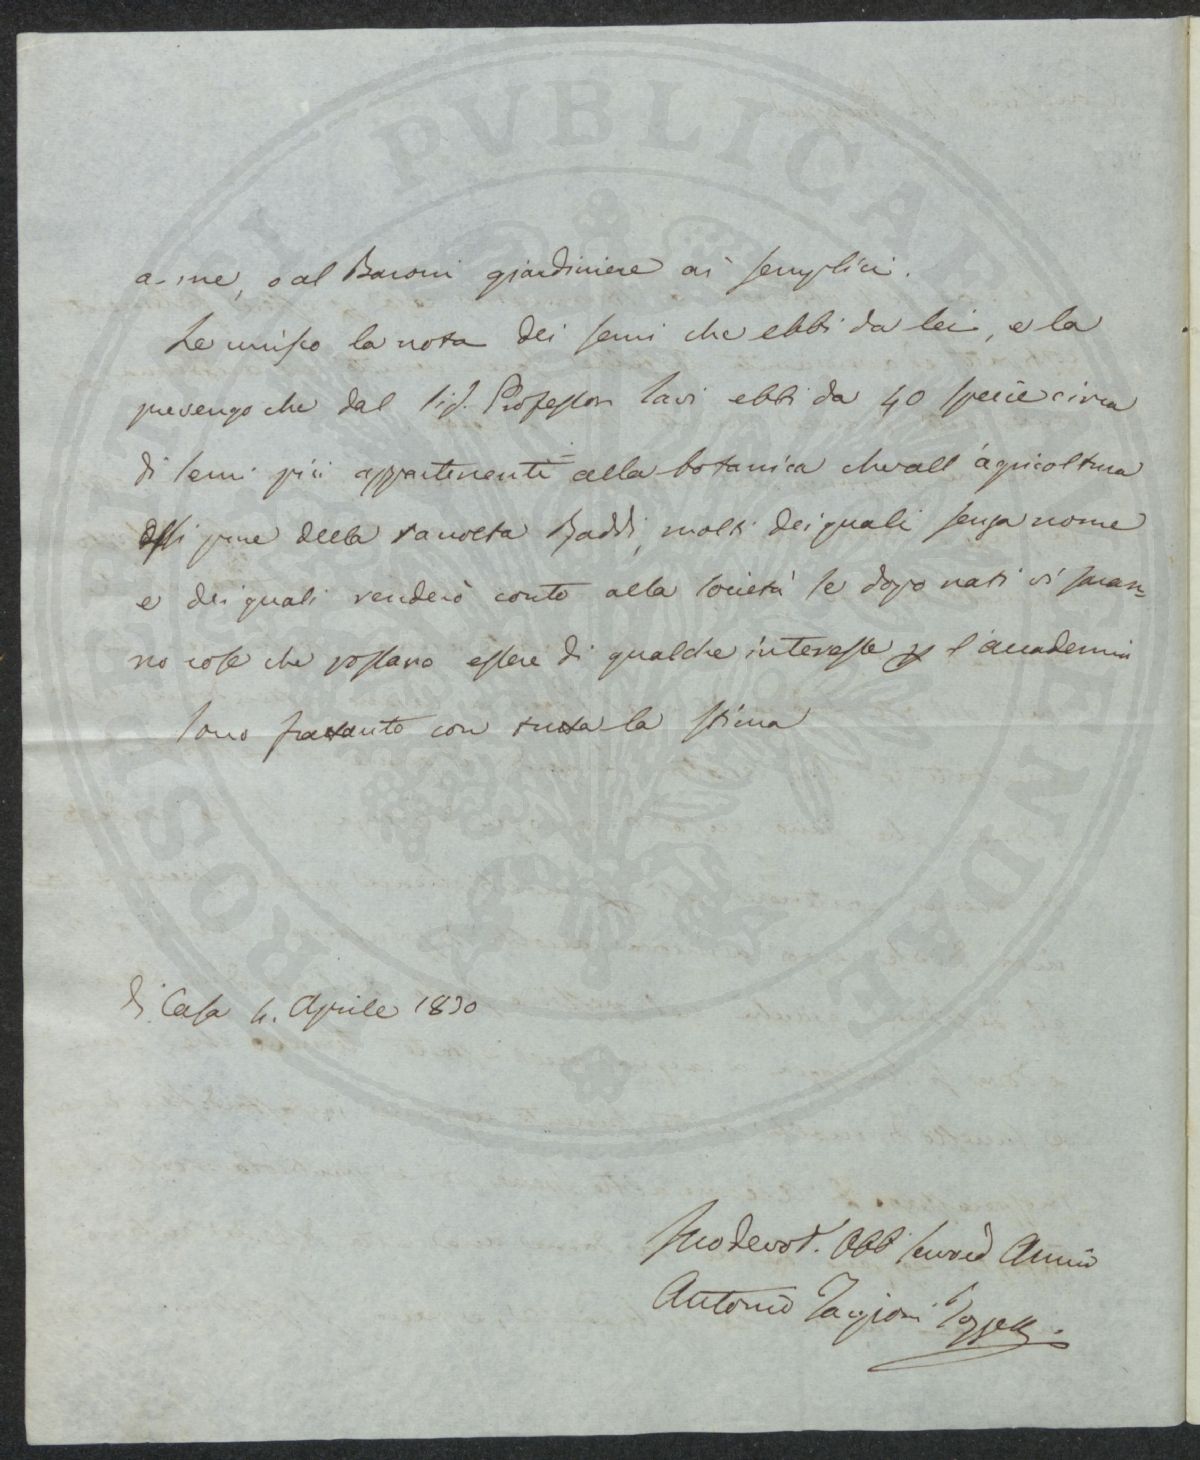 a me, o al Baroni giardiniere ai semplici.
Le unisco la nota dei semi che ebbi da lei, e la
prevengo che dal Sig. Professor Savi ebbi da 40 specie circa
di semi più appartenenti alla botanica che all'agricoltura
essi pure della raccolta Raddi, molti dei quali senza nome
e dei quali renderò conto alla Società se dopo nati vi saran=
no cose che possano essere di qualche interesse p l'accademia
Sono frattanto con tutta la stima
di Casa 4. Aprile 1830
Suo devot. Obb Amico
Antonio Targioni Tozzetti
PROSPERITATI PVBLICAE AVGENDAE